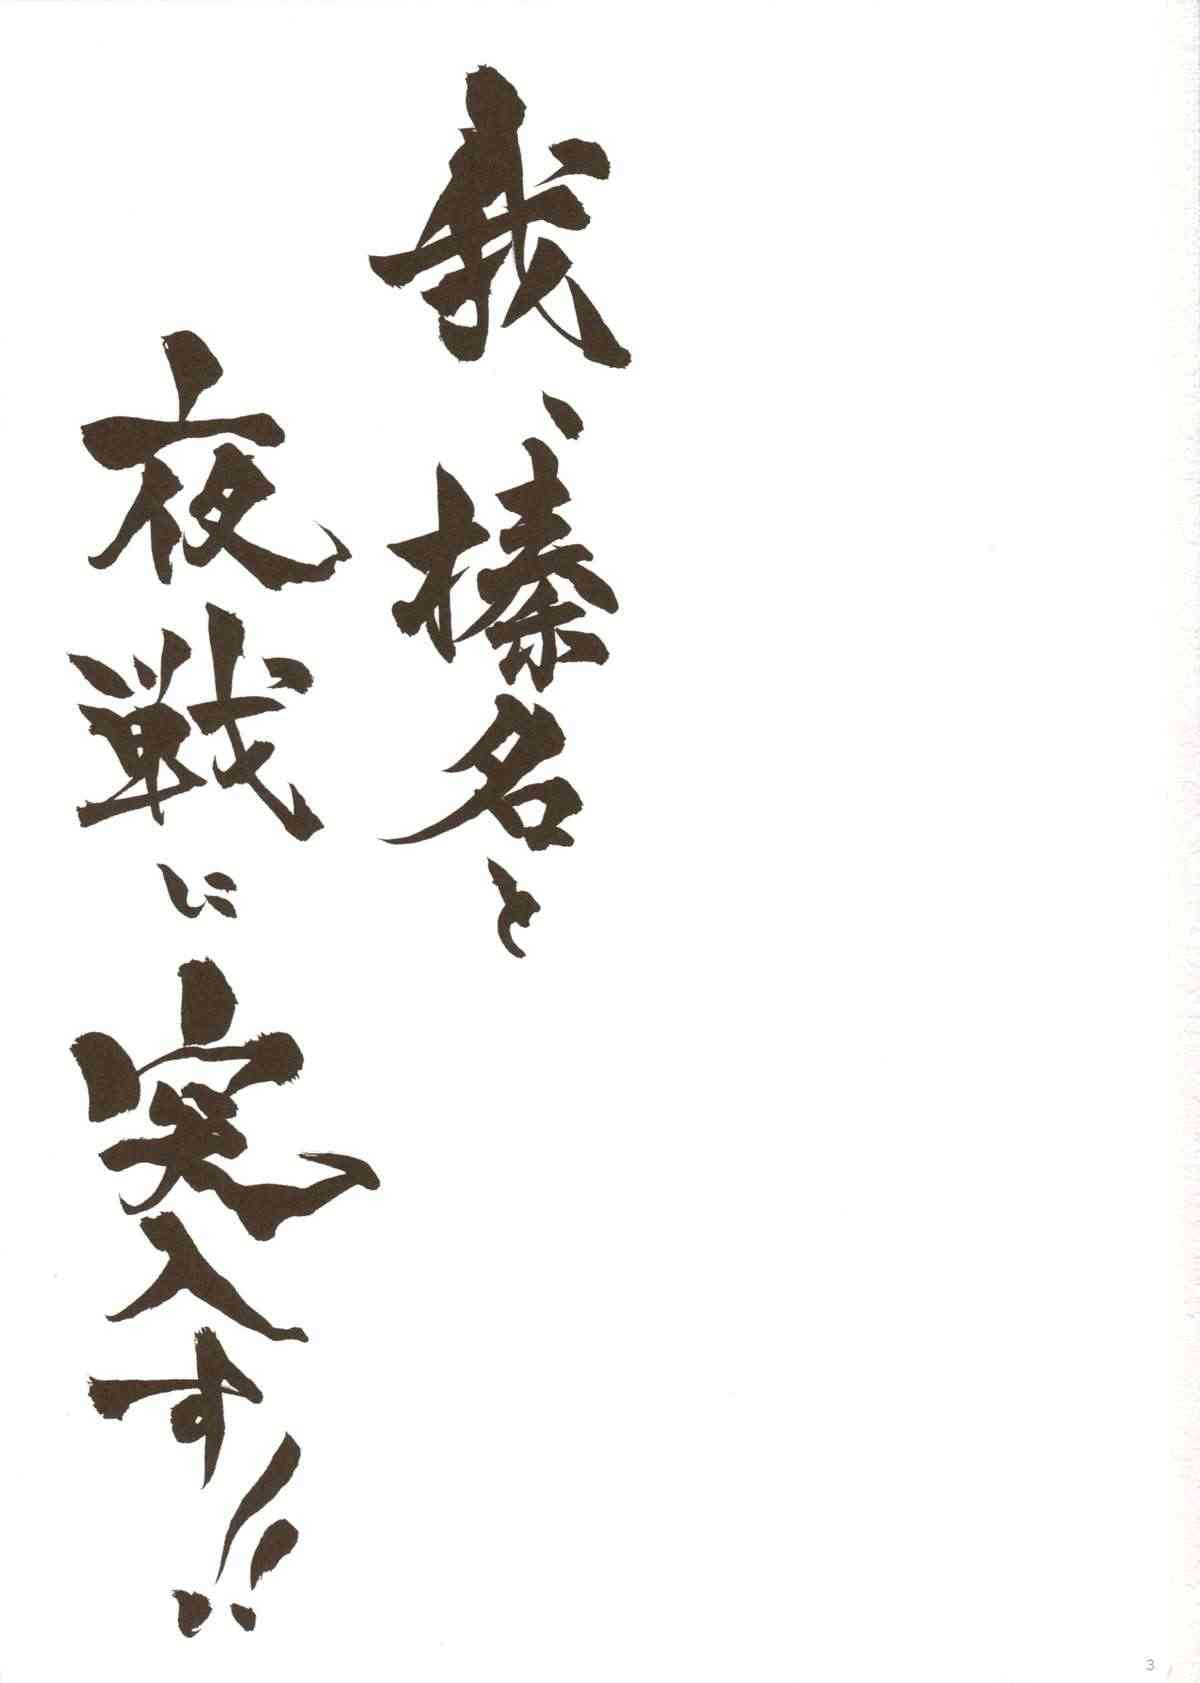 我、榛名と
夜戦に突入す!!
3